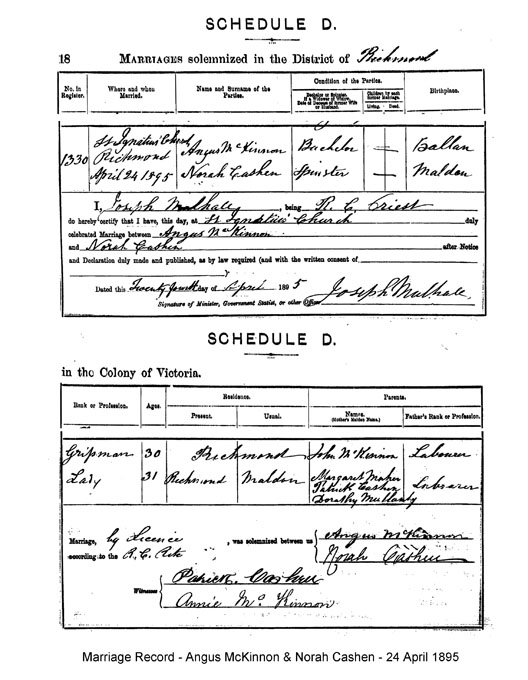 SCHEDULE D.
18 MARRIAGES solemnized in the District of Richmond
No. in Register. Where and when Married. Name and Surname of the Parties. Condition of the Parties. Birthplace.
Bachelor or Spinster. If a Widower or Widow, Date of Decease of former Wife or Husband. Children by each former Marriage. Living. Dead.
1330 St Ignatius Church Richmond April 24 1895
Angus McKinnon Bachelor — Ballan
Norah Cashen Spinster — Maldon
I, Joseph Mulhall, being R. C. Priest
do hereby certify that I have, this day, at St Ignatius' Church duly
celebrated Marriage between Angus McKinnon
and Norah Cashen after Notice
and Declaration duly made and published, as by law required (and with the written consent of
)
Dated this Twenty fourth day of April 1895
Joseph Mulhall
Signature of Minister, Government Statist, or other Officer
SCHEDULE D.
in the Colony of Victoria.
Rank or Profession. Ages. Residence. Parents.
Present. Usual. Names. (Mother's Maiden Name.) Father's Rank or Profession.
Gripman 30 Richmond John McKinnon Labourer
Margaret Maher
Lady 31 Richmond Maldon Patrick Cashen Labourer
Dorothy
Marriage, by Licence, was solemnized between us Angus McKinnon
according to the R. C. Rite Norah Cashen
Witnesses Patrick Cashen
Annie McKinnon
Marriage Record - Angus McKinnon & Norah Cashen - 24 April 1895